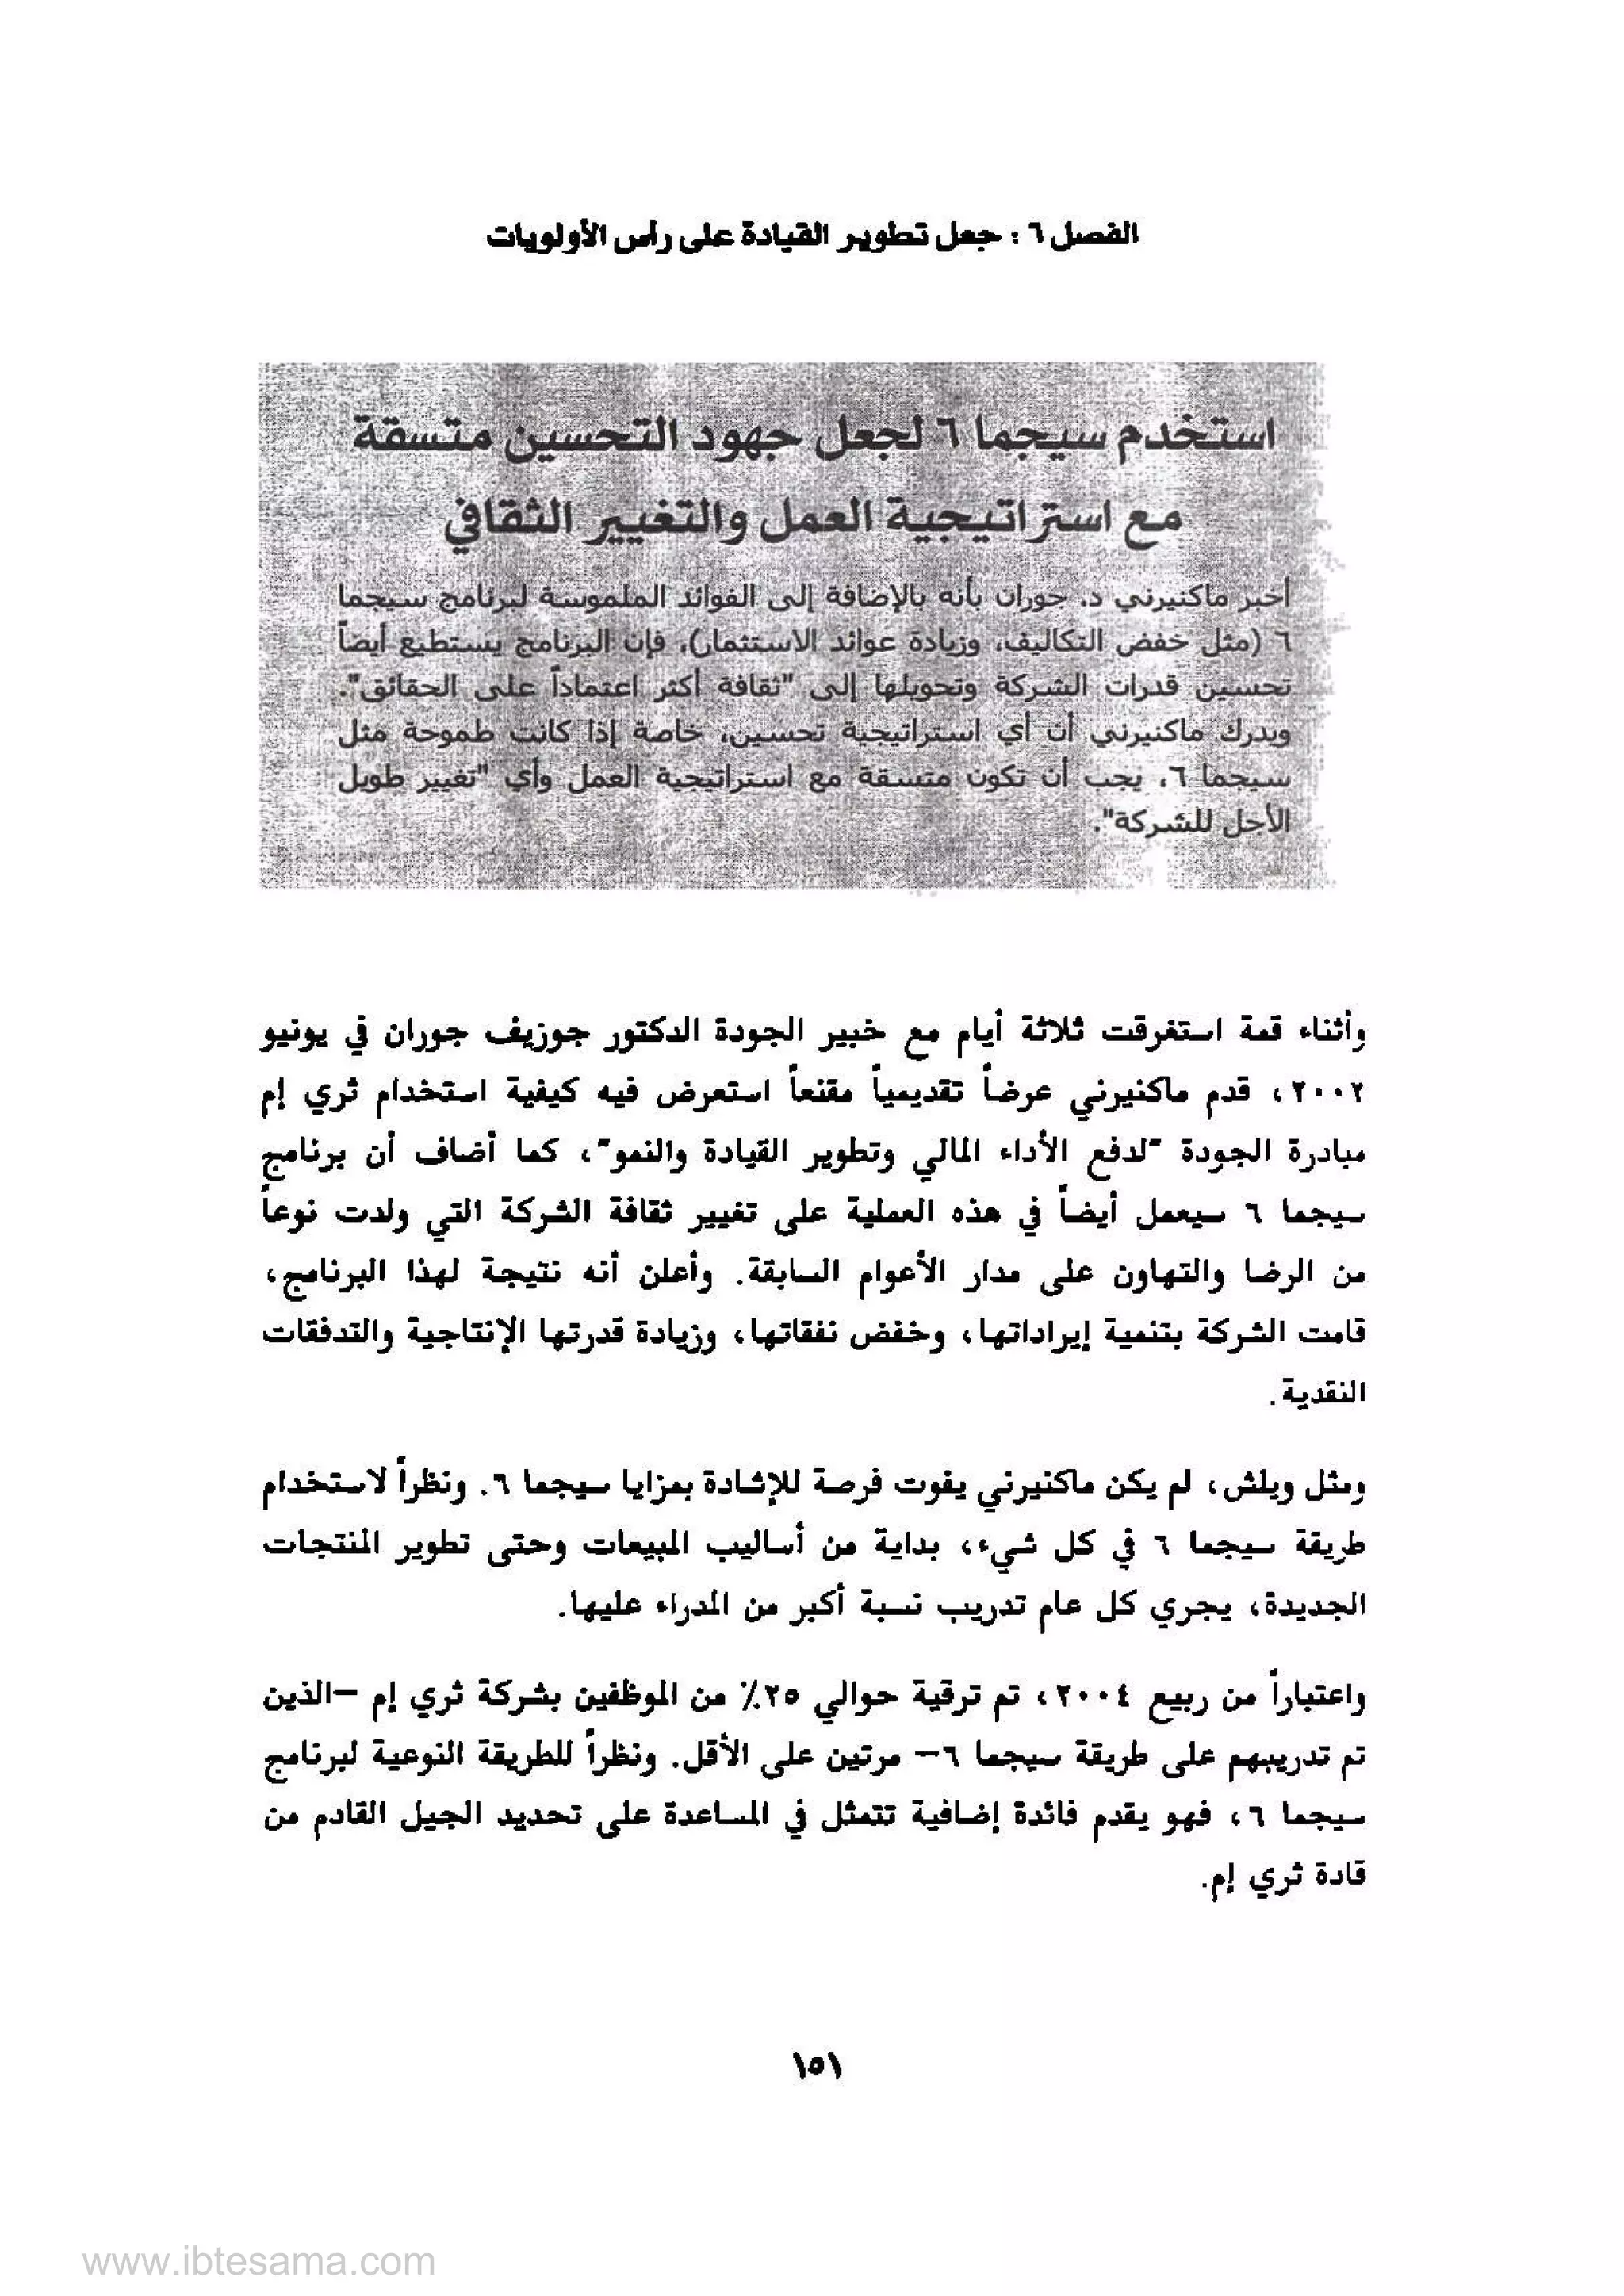 الفصل ٦ : جعل تطوير القيادة على رأس الأولويات
استخدم سيجما ٦ لجعل جهود التحسين متسقة
مع استراتيجية العمل والتغيير الثقافي
أخبر ماكنيرني د. جوران بأنه بالإضافة إلى الفوائد الملموسة لبرنامج سيجما
٦ (مثل خفض التكاليف، وزيادة عوائد الاستثمار)، فإن البرنامج يستطيع أيضاً
تحسين قدرات الشركة وتحويلها إلى "ثقافة أكثر اعتماداً على الحقائق".
ويدرك ماكنيرني أن أي استراتيجية تحسين، خاصة إذا كانت طموحة مثل
سيجما ٦، يجب أن تكون متسقة مع استراتيجية العمل وأي "تغيير طويل
الأجل للشركة".
وأثناء قمة استغرقت ثلاثة أيام مع خبير الجودة الدكتور جوزيف جوران في يونيو
٢٠٠٢، قدم ماكنيرني عرضاً تقديمياً مقنعاً استعرض فيه كيفية استخدام ثري إم
مبادرة الجودة "لدفع الأداء المالي وتطوير القيادة والنمو"، كما أضاف أن برنامج
سيجما ٦ سيعمل أيضاً في هذه العملية على تغيير ثقافة الشركة التي ولدت نوعاً
من الرضا والتهاون على مدار الأعوام السابقة. وأعلن أنه نتيجة لهذا البرنامج،
قامت الشركة بتنمية إيراداتها، وخفض نفقاتها، وزيادة قدرتها الإنتاجية والتدفقات
النقدية.
ومثل ويلش، لم يكن ماكنيرني يفوت فرصة للإشادة بمزايا سيجما ٦. ونظراً لاستخدام
طريقة سيجما ٦ في كل شيء، بداية من أساليب المبيعات وحتى تطوير المنتجات
الجديدة، يجري كل عام تدريب نسبة أكبر من المدراء عليها.
واعتباراً من ربيع ٢٠٠٤، تم ترقية حوالي ٢٥٪ من الموظفين بشركة ثري إم –الذين
تم تدريبهم على طريقة سيجما ٦– مرتين على الأقل. ونظراً للطريقة النوعية لبرنامج
سيجما ٦، فهو يقدم فائدة إضافية تتمثل في المساعدة على تحديد الجيل القادم من
قادة ثري إم.
١٥١
www.ibtesama.com